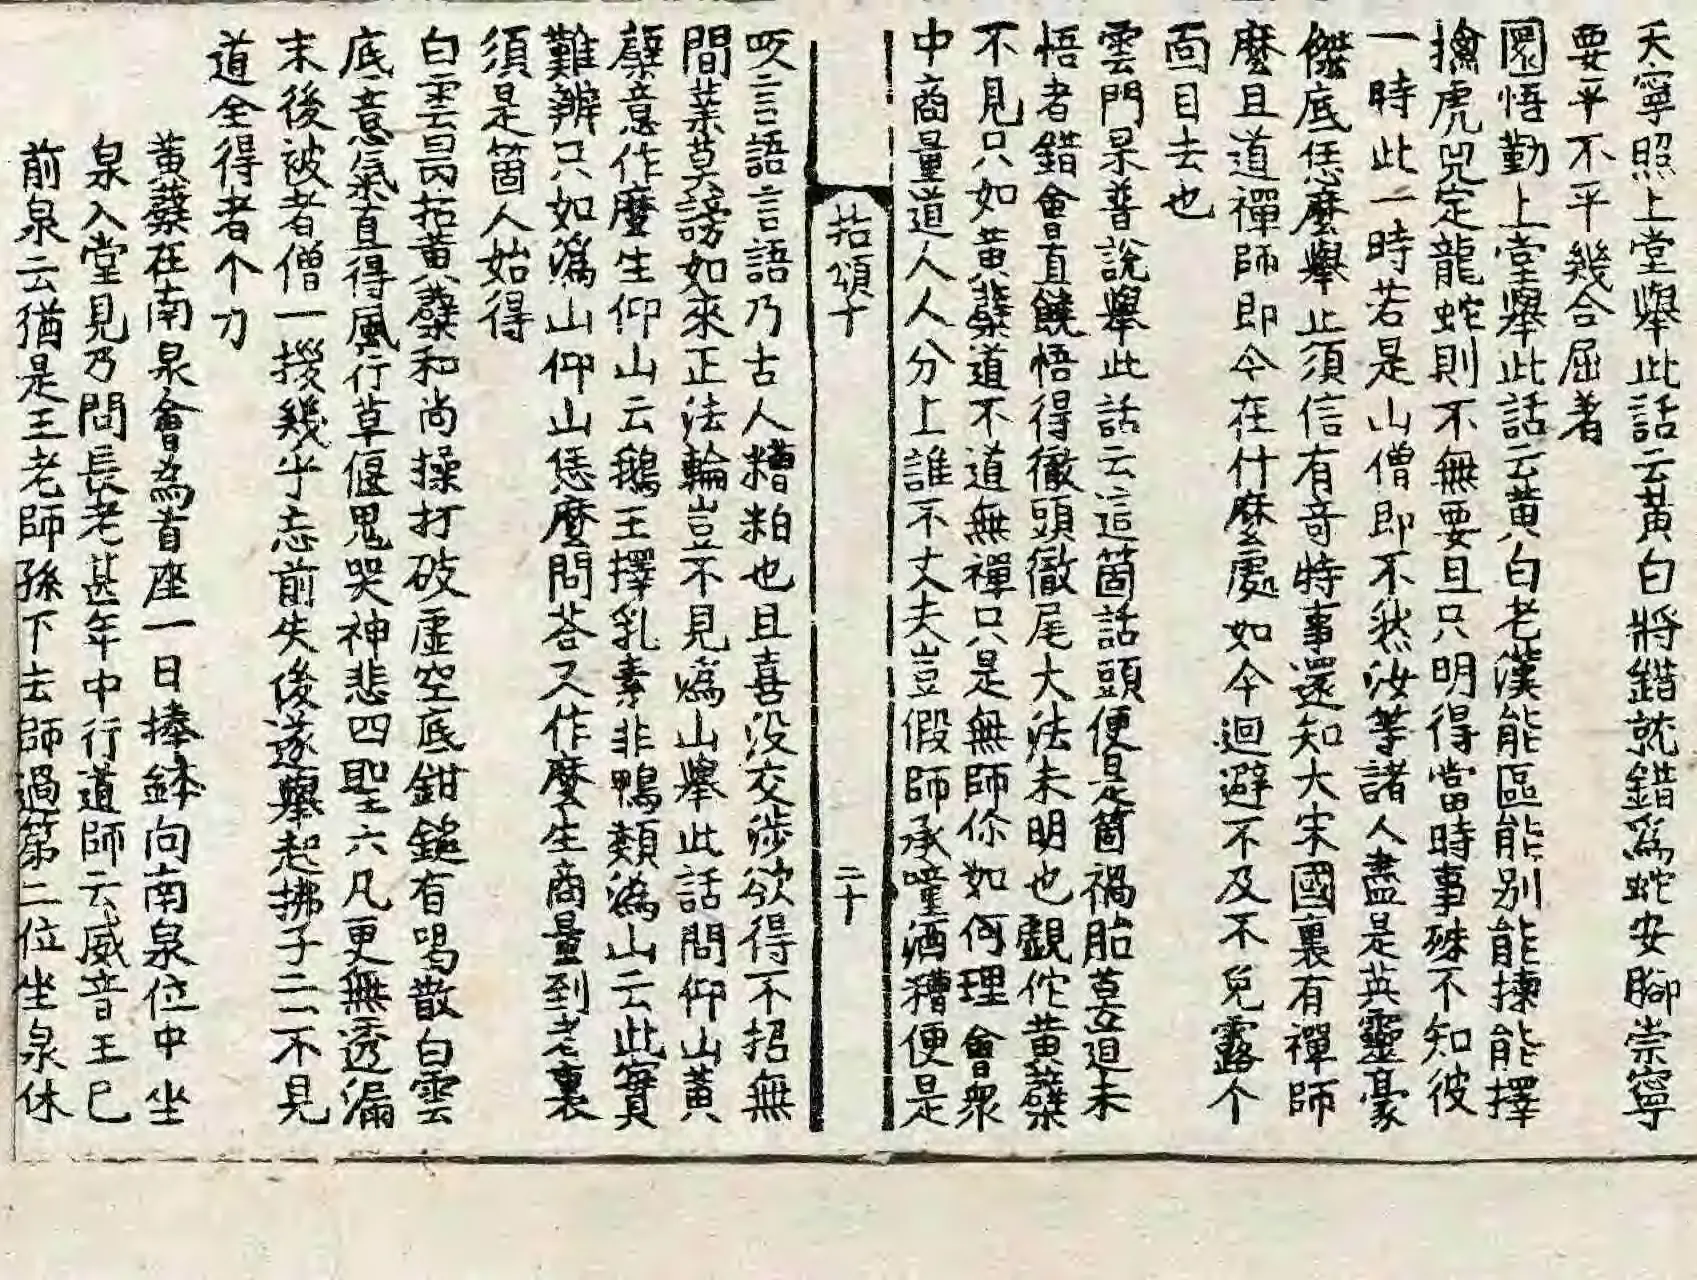 天寧照上堂舉此話云黃白將錯就錯爲蛇安脚崇寧
要平不平幾合屈著
圜悟勤上堂舉此話云黃白老漢能區能別能揀能擇
擒虎兕定龍蛇則不無要且只明得當時事殊不知彼
一時此一時若是山僧即不然汝等諸人盡是英靈豪
傑底恁麽舉止須信有竒特事還知大宋國裏有禪師
麽且道禪師即今在什麽處如今迴避不及不免露个
面目去也
雲門杲普說舉此話云這箇話頭便是箇禍胎莫道未
悟者錯會直饒悟得徹頭徹尾大法未明也覷佗黃蘗
不見只如黃蘗道不道無禪只是無師你如何理會衆
中商量道人人分上誰不丈夫豈假師承噇酒糟便是
拈頌十
二十
咬言語言語乃古人糟粕也且喜沒交涉欲得不招無
間業莫謗如來正法輪豈不見潙山舉此話問仰山黃
蘗意作麽生仰山云鵝王擇乳素非鴨類潙山云此實
難辨只如潙山仰山恁麽問荅又作麽生商量到者裏
須是箇人始得
白雲昺拈黃蘗和尚操打破虛空底鉗鎚有喝散白雲
底意氣直得風行草偃鬼哭神悲四聖六凡更無透漏
末後被者僧一拶幾乎忘前失後遂舉起拂子云不見
道全得者个力
黃蘗在南泉會爲首座一日捧鉢向南泉位中坐
泉入堂見乃問長老甚年中行道師云威音王已
前泉云猶是王老師孫下去師過第二位坐泉休